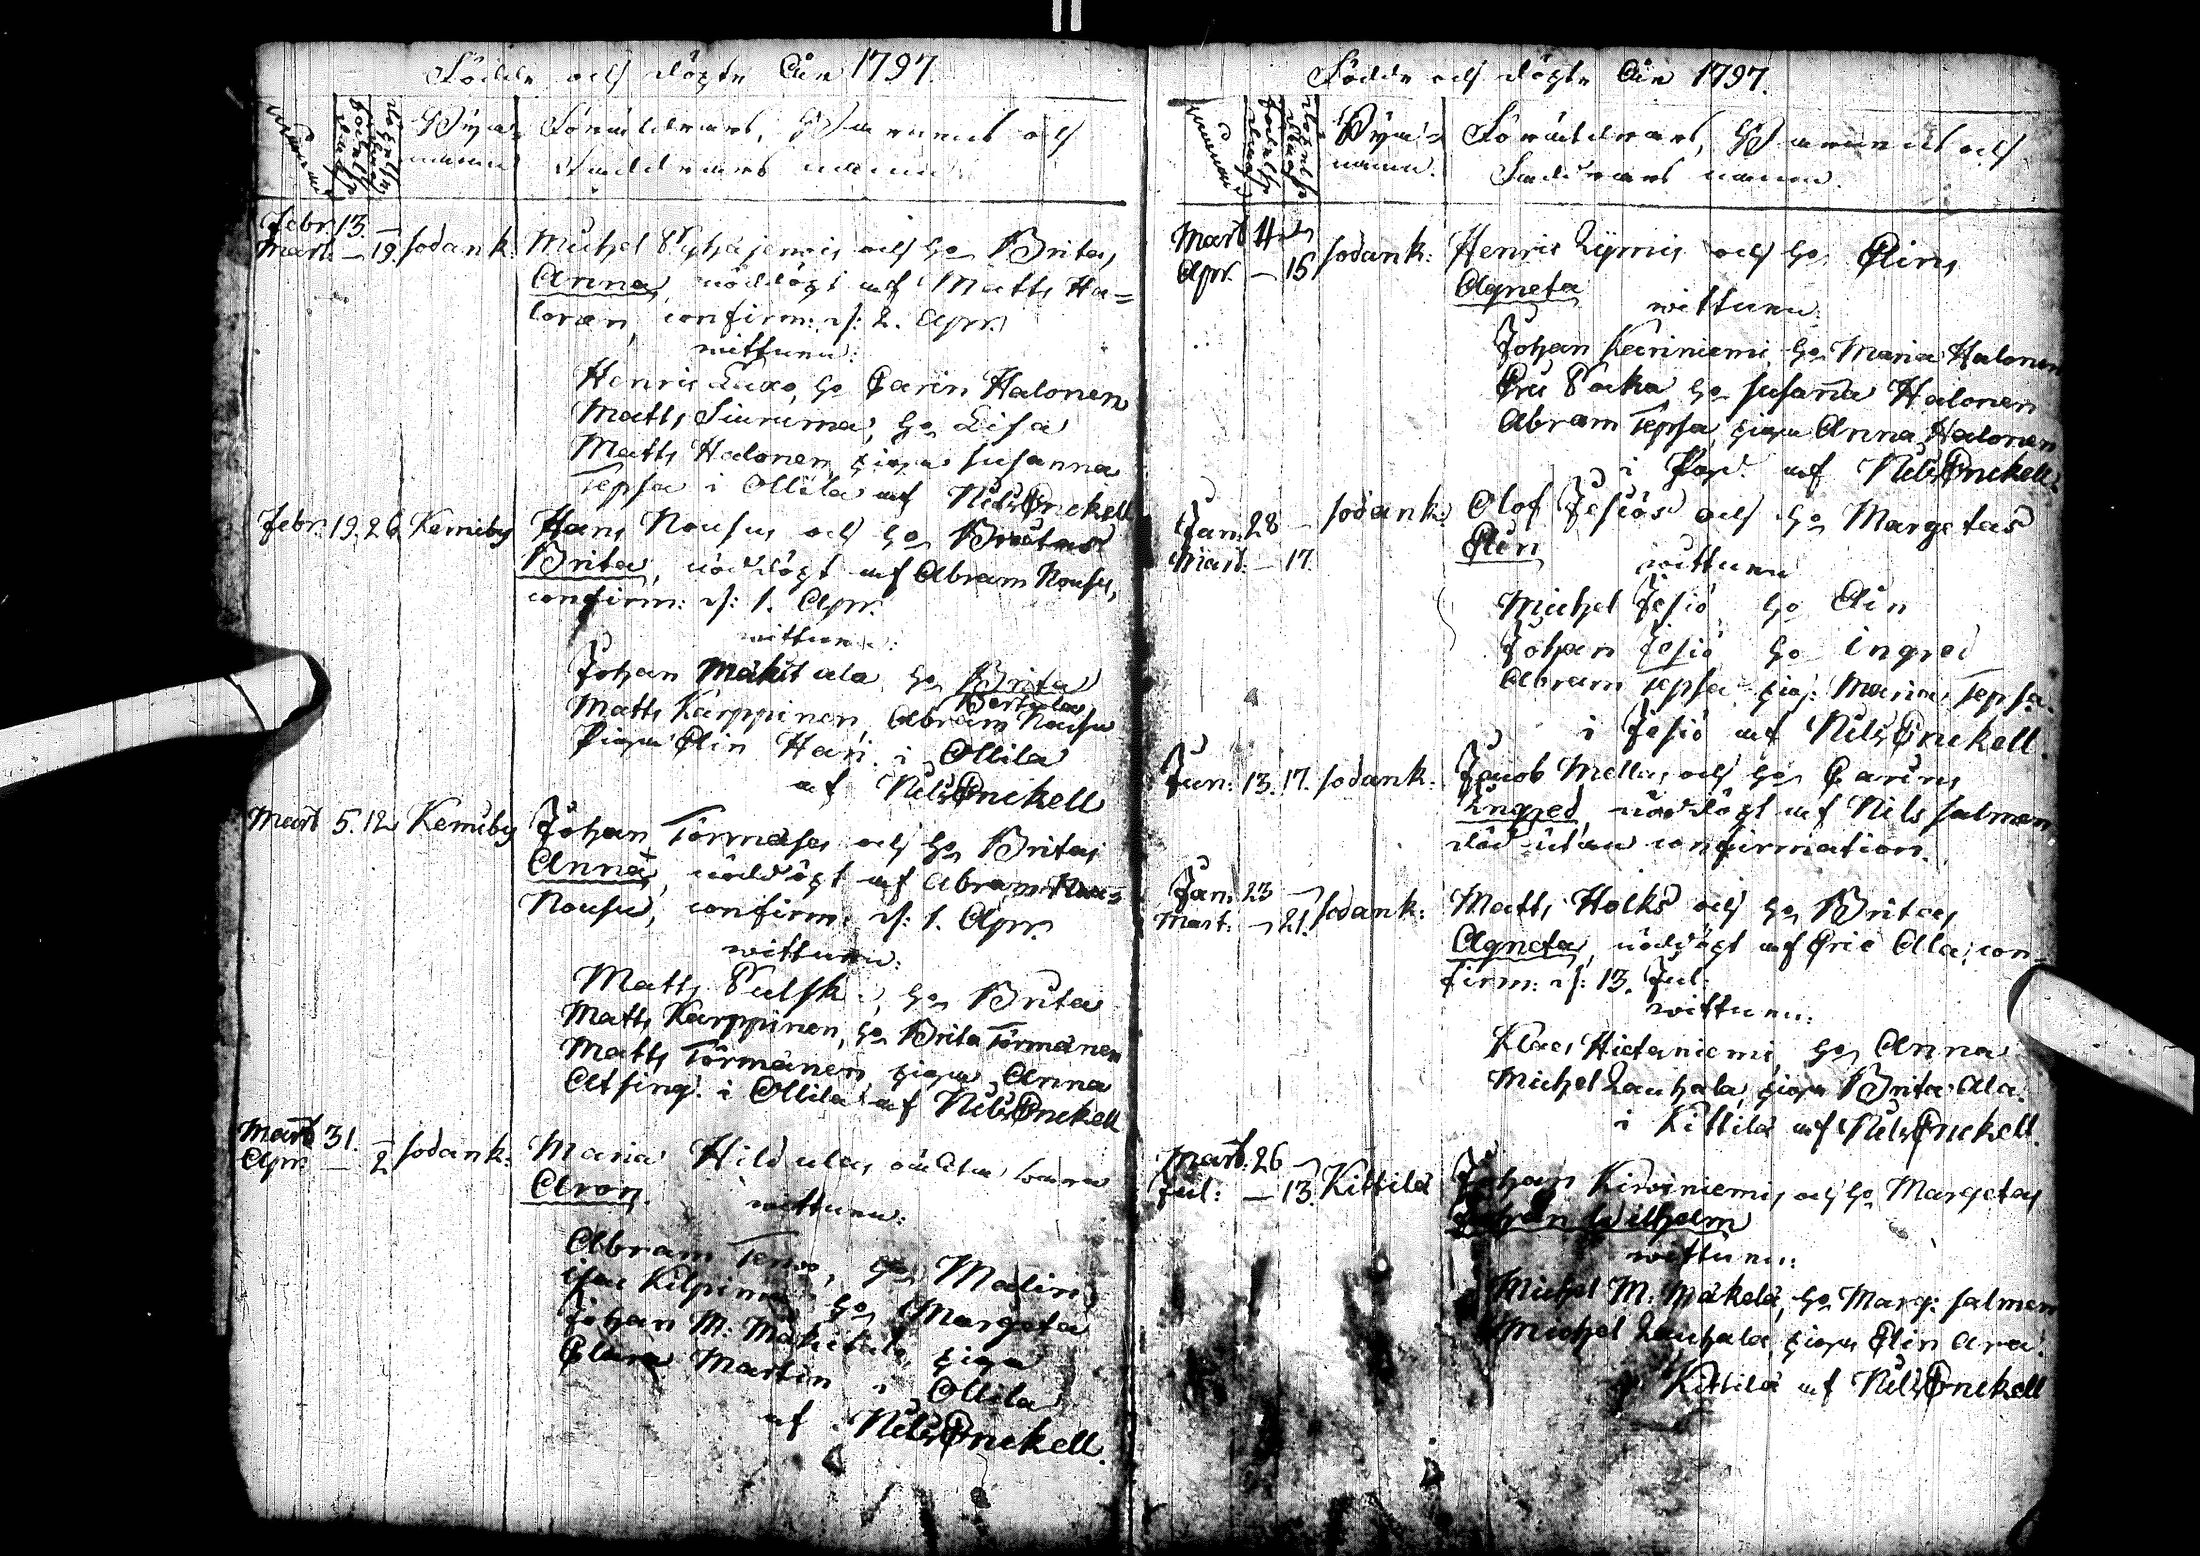 Födde och döpte År 1797.
Månad
Födelse
dag
döpelse
dag
Byns
namn
Föräldrars, Barnets och
Faddrars namn.
Febr. 13. —
Mart. — 19. Sodank: Michel Pyhäjervis och ho Britas
Anna, nöddöpt af Matts Ha=
lonen, confirm: d: 2. Apr.
wittnen:
Henric Luiro, ho Carin Halonen
Matts Siuruma, ho Lisa
Matts Halonen, piga Susanna
Tepsa i Ollila af Nils Enckell
Febr. 19. 26. Kemiby Hans Nousus och ho Britas
Brita, nöddöpt af Abram Nousu,
confirm: d: 1. Apr.
wittnen:
Johan Mäkitalo, ho Brita
Matts Karppinen, Abram Nousu
Piga Elin Hari i Ollila
af Nils Enckell
Mart 5. 12. Kemiby Johan Törmäses och ho Britas
Anna, nöddöpt af Abram
Nousu, confirm. d: 1. Apr.
wittnen:
Matts Pulsk:, ho Brita
Matts Karppinen, ho Brita Törmänen
Matts Törmänen piga Anna
Atsing: i Ollila af Nils Enckell
Mart 31. —
Apr. — 2 Sodank: Maria Hildulas oäkta barn
Aron.
wittnen:
Abram Tervo, ho Malin
Isac Kilpimaa ho Margeta
Johan M: Mäkitalo, piga
Clara Martin i Ollila
af Nils Enckell.
Födde och döpte År 1797.
Månad
Födelse
dag
döpelse
dag
Byns
namn.
Föräldrars, Barnets och
Faddrars namn.
Mart 4. —
Apr. — 15 Sodank: Henric Lymis och ho Elins
Agneta
wittnen:
Johan Kariniemi, ho Maria Halonen
Eric Pocka, ho Susanna Halonen
Abram Tepsa, piga Anna Halonen
i af Nils Enckell.
Jan. 28 —
Mart. — 17. Sodank: Olof Jesiös och ho Margetas
Elin
wittnen
Michel Jesiö ho Elin
Johan Jesiö ho Ingred
Abram Tepsa pig: Maria Tepsa.
i Jesiö af Nils Enckell.
Jan: 13. 17. Sodank: Jacob Mellas och ho Carins
Ingred, nöddöpt af Nils Salmen
död utan confirmation.
Jan: 23 —
Mart: — 21. Sodank: Matts Holks och ho Britas
Agneta, nöddöpt af Eric Ala, con=
firm: d: 13. Jul.
wittnen:
Klaes Hietaniemi, ho Anna
Michel Lauhala, piga Brita Ala.
i Kittilä af Nils Enckell.
Mart: 26 —
Jul: — 13. Kittilä Johan Kirviniemis och ho Margetas
Johan Wilhelm
wittnen:
Michel M: Mäkelä, ho Marg: Salmen
Michel Lauhala, piga Elin Ara.
Kittilä af Nils Enckell